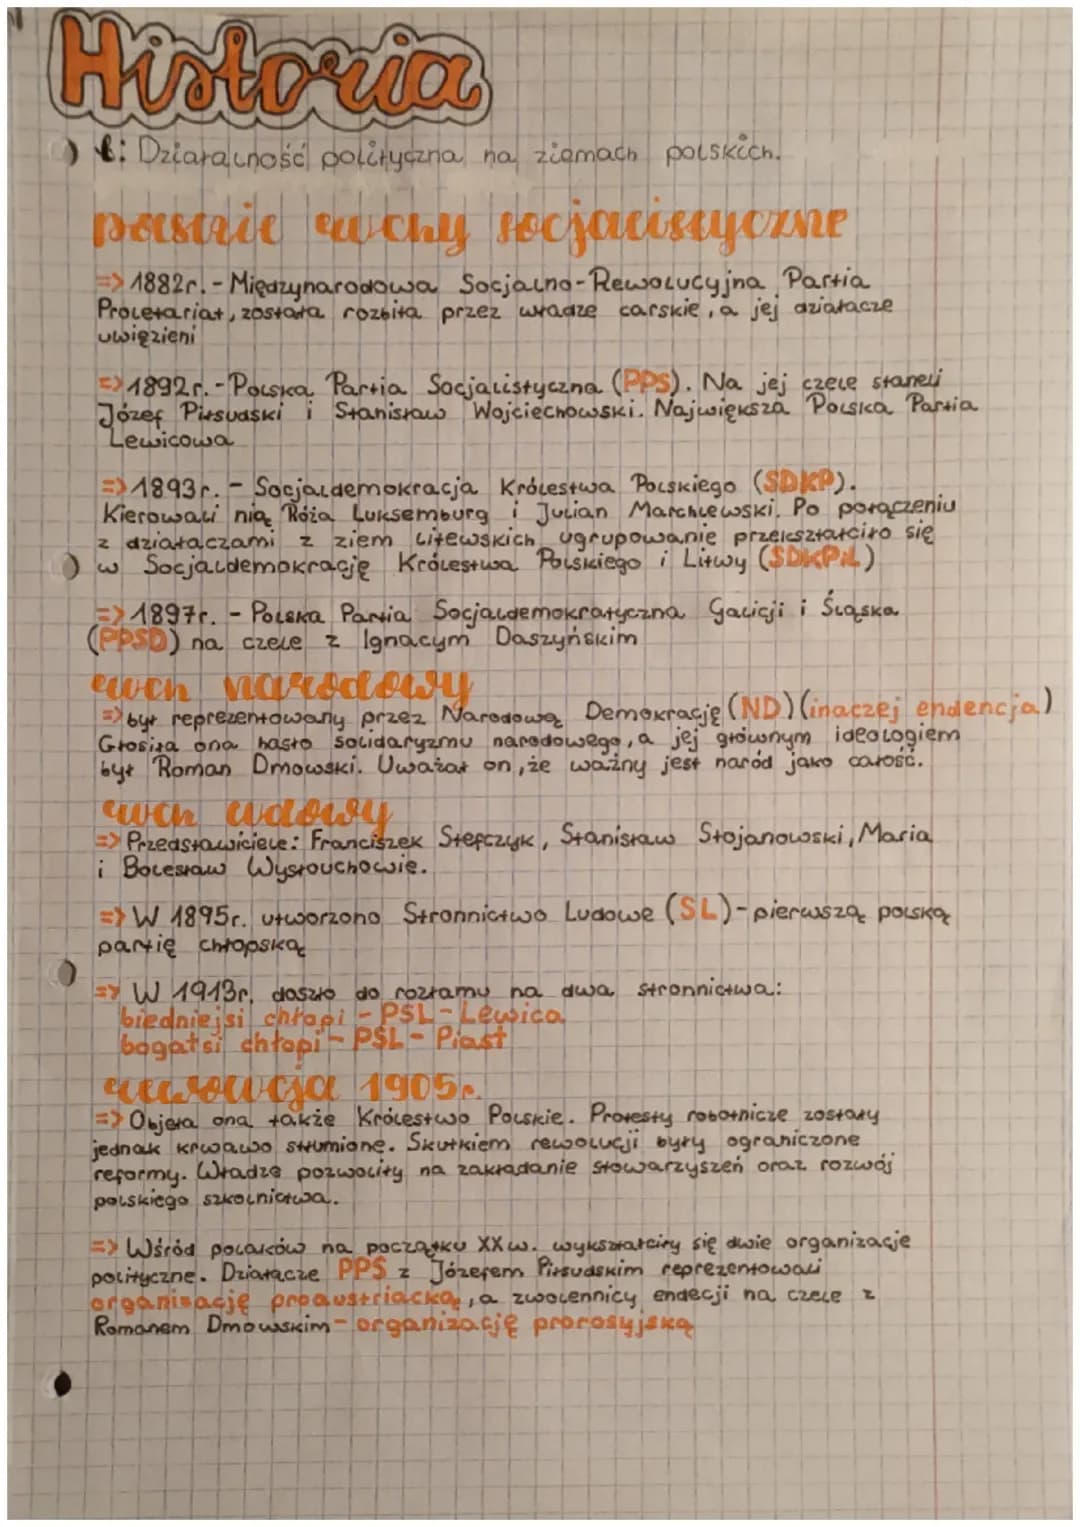 Historia
t: Działalność polityczna na ziemach polskich.
polskie ruchy socjalistyczne
=> 1882r. - Międzynarodowa Socjalno-Rewolucyjna Partia
Proletariat, została rozbita przez władze carskie, a jej działacze
uwięzieni
=> 1892r. - Polska Partia Socjalistyczna (PPS). Na jej czele staneli
Józef Piłsudski i Stanisław Wojciechowski. Największa Polska Partia
Lewicowa
=> 1893r. - Socjaldemokracja Królestwa Polskiego (SDKP).
Kierowali nią Róża Luksemburg i Julian Marchlewski. Po połączeniu
z działaczami z ziem litewskich ugrupowanie przekształciło się
w Socjaldemokrację Królestwa Polskiego i Litwy (SDKPiL)
=> 1897r. - Polska Partia Socjaldemokratyczna Galicji i Śląska
(PPSD) na czele z Ignacym Daszyńskim
ruch narodowy
=> był reprezentowany przez Narodową Demokrację (ND) (inaczej endencja)
Głosiła ona hasło solidaryzmu narodowego, a jej głównym ideologiem
był Roman Dmowski. Uważał on, że ważny jest naród jako całość.
ruch ludowy
=> Przedstawiciele: Franciszek Stefczyk, Stanisław Stojanowski, Maria
i Bolesław Wysłouchowie.
=> W 1895r. utworzono Stronnictwo Ludowe (SL) - pierwszą polską
partię chłopską
=> W 1913r. doszło do rozłamu na dwa stronnictwa:
biedniejsi chłopi - PSL - Lewica
bogatsi chłopi - PSL - Piast
rewolucja 1905r.
=> Objeła ona także Królestwo Polskie. Protesty robotnicze zostały
jednak krwawo stłumione. Skutkiem rewolucji były ograniczone
reformy. Władze pozwoliły na zakładanie stowarzyszeń oraz rozwój
polskiego szkolnictwa.
=> Wśród polaków na początku XX w. wykształciły się dwie organizacje
polityczne. Działacze PPS z Józefem Piłsudskim reprezentowali
organizację proaustriacką, a zwolennicy endecji na czele z
Romanem Dmowskim - organizację prorosyjską